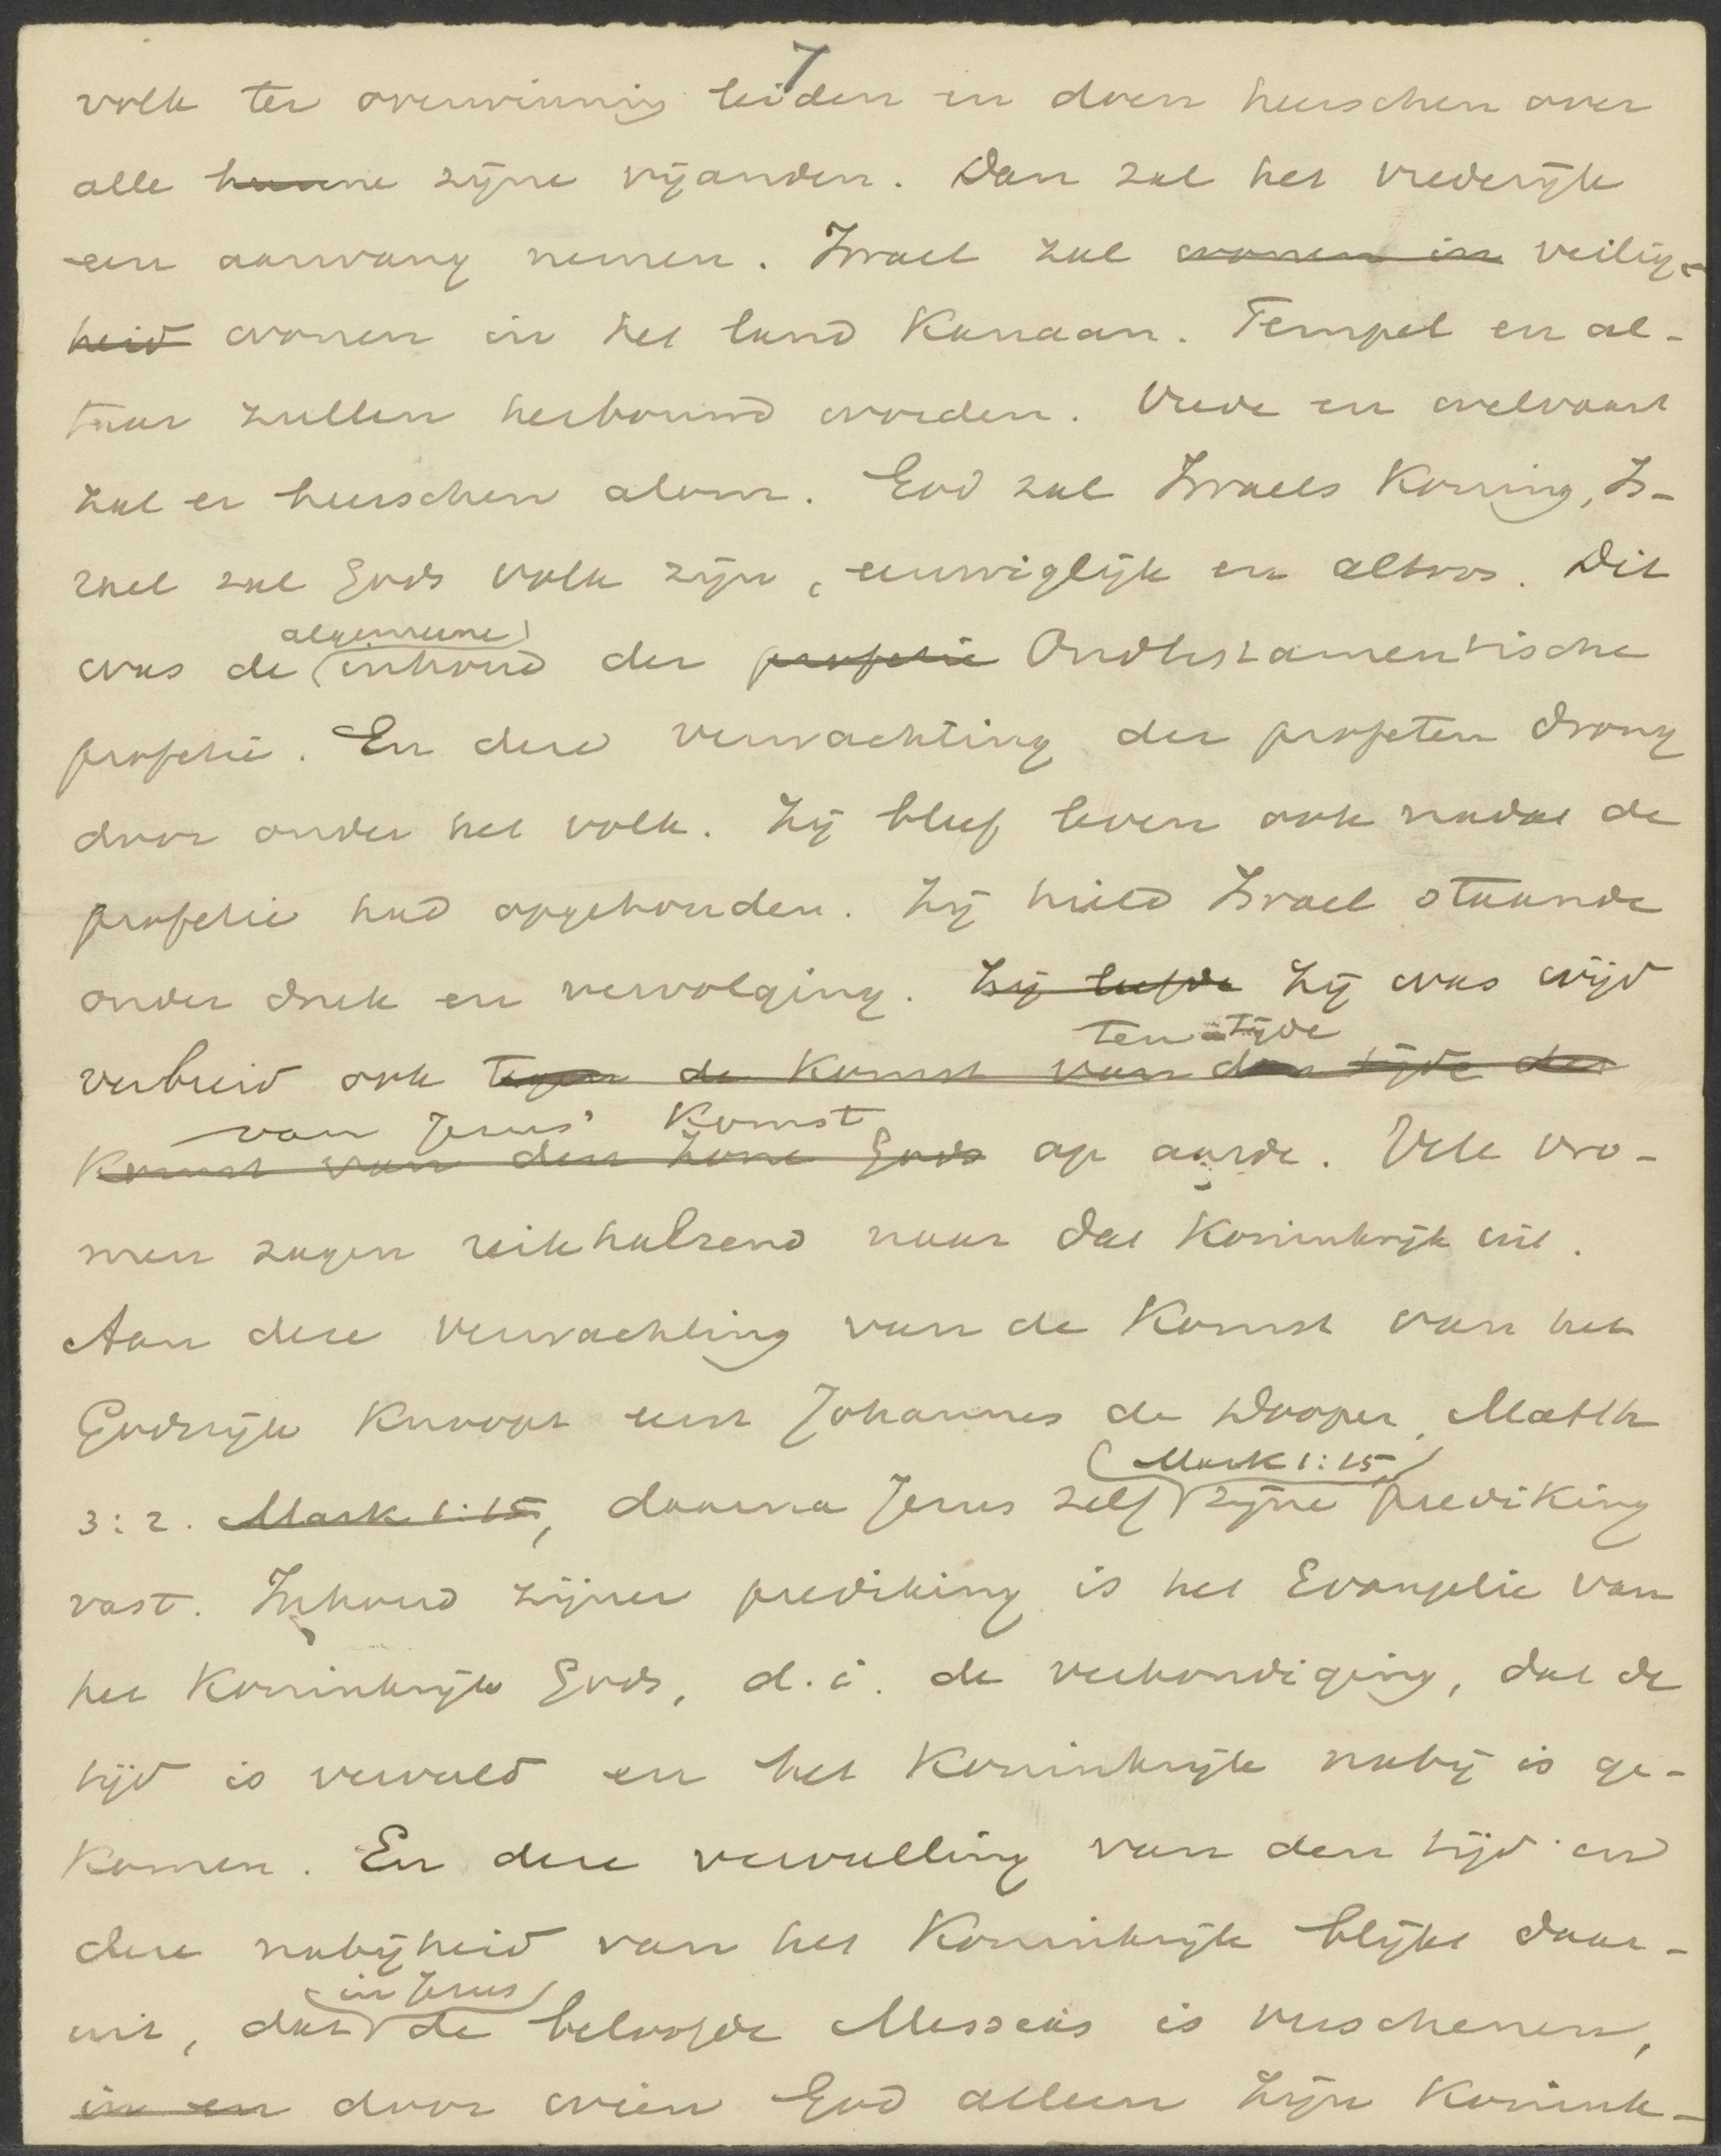 7
volk ter overwinning leiden en doen heerschen over
alle hunne zijne vijanden. Dan zal het vrederijk
een aanvang nemen. Israel zal wonen in veilig-
heid wonen in het land Kanaan. Tempel en al-
taar zullen herbouwd worden. Vrede en welvaart
zal er heerschen alom. God zal Israels Koning, Is-
rael zal Gods volk zijn, eeuwiglijk en altoos. Dit
algemeene
was de inhoud der profetie Oudtestamentische
profetie. En deze verwachting der profeten drong
door onder het volk. Zij bleef leven ook nadat de
profetie had opgehouden. Zij hield Israel staande
onder druk en vervolging. Zij leefde Zij was wijd
ten tijde
verbreid ook tegen de Komst van den tijde der
van Jezus' Komst
Komst van den Zone Gods op aarde. Vele vro-
men zagen reikhalzend naar dat Koninkrijk uit.
Aan deze verwachting van de Komst van het
Godsrijk Knoopt eerst Johannes de Dooper, Matth
(Mark 1:15)
3:2. Mark 1:15, daarna Jezus zelf zijne prediking
vast. Inhoud zijner prediking is het Evangelie van
het Koninkrijk Gods, d.i. de verkondiging, dat de
tijd is vervuld en het Koninkrijk nabij is ge-
Komen. En deze vervulling van den tijd en
deze nabijheid van het Koninkrijk blijkt daar-
in Jezus
uit, dat de beloofde Messias is verschenen,
in en door wien God alleen Zijn Konink-